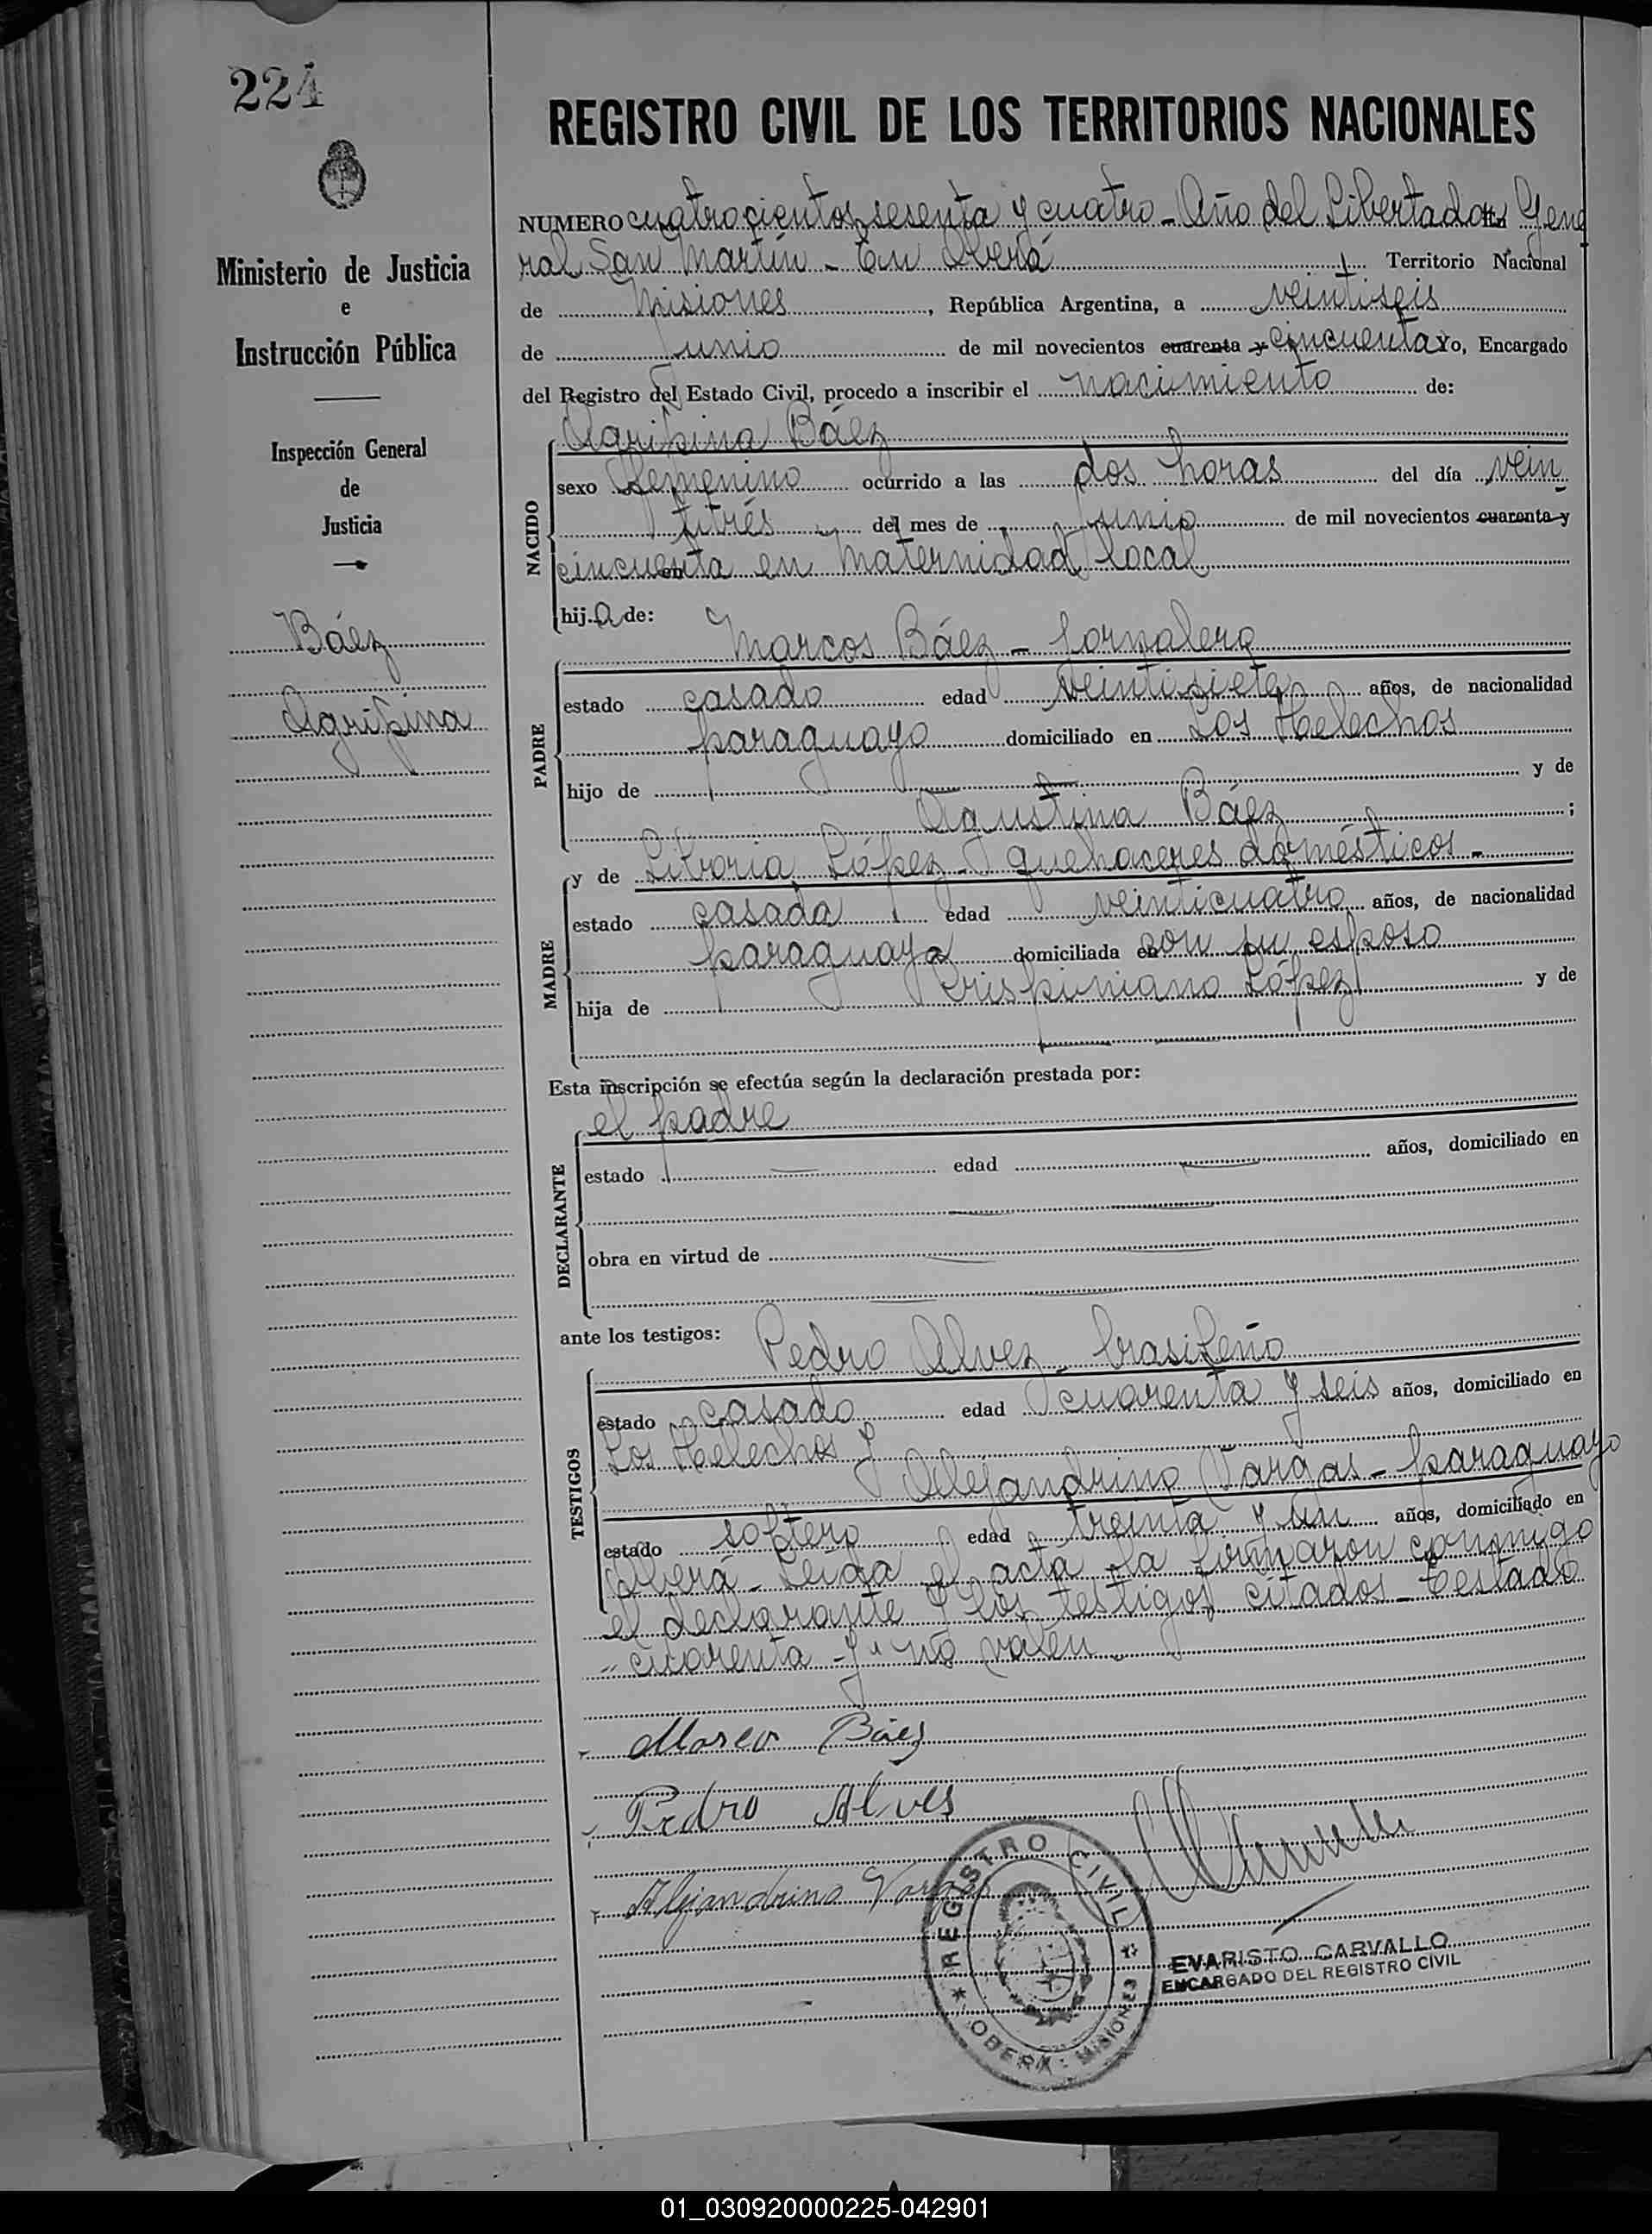 224
REGISTRO CIVIL DE LOS TERRITORIOS NACIONALES
Ministerio de Justicia
e
Instrucción Pública
Inspección General
de
Justicia
Báez
Agripina
NUMERO cuatrocientos sesenta y cuatro - Año del Libertador Gene
ral San Martín - En Oberá Territorio Nacional
de Misiones, República Argentina, a veintiseis
de Junio de mil novecientos cuarenta y cincuenta Yo, Encargado
del Registro del Estado Civil, procedo a inscribir el nacimiento de:
Agripina Báez
NACIDO
sexo femenino ocurrido a las dos horas del día vein
titrés del mes de junio de mil novecientos cuarenta y
cincuenta en Maternidad local
hija de:
Marcos Báez - Jornalero
PADRE
estado casado edad veintisiete años, de nacionalidad
paraguayo domiciliado en Los Helechos
hijo de y de
Agustina Báez ;
MADRE
y de Liboria López - quehaceres domésticos -
estado casada edad veinticuatro años, de nacionalidad
paraguaya domiciliada con su esposo
hija de Crispiniano López y de
Esta inscripción se efectúa según la declaración prestada por:
el padre
DECLARANTE
estado edad años, domiciliado en
obra en virtud de
ante los testigos: Pedro Alvez - brasileño
TESTIGOS
estado casado edad cuarenta y seis años, domiciliado en
Los Helechos y
Alejandrino Vargas - paraguayo
estado soltero edad treinta y un años, domiciliado en
Oberá - Leída el acta la firmaron conmigo
el declarante y los testigos citados - Testado
"cuarenta - y" no valen -
Marco Báez
Pedro Alves
Alejandrino Vargas
REGISTRO CIVIL
OBERÁ - MISIONES
EVARISTO CARVALLO
ENCARGADO DEL REGISTRO CIVIL
01_030920000225-042901